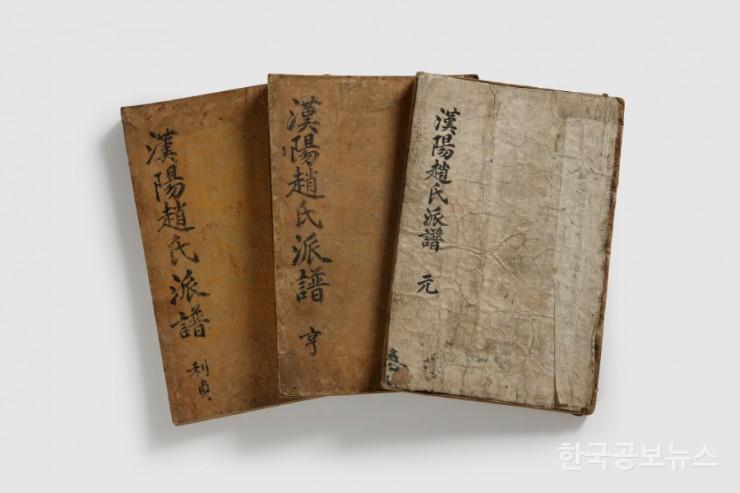 漢陽趙氏派譜 元
漢陽趙氏派譜 亨
漢陽趙氏派譜 利貞
한국공보뉴스